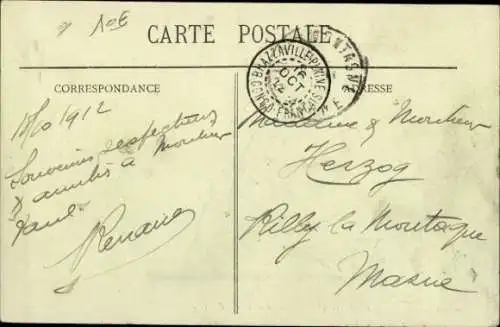 10E
CARTE POSTALE
CORRESPONDANCE
ADRESSE
CONGO FRANÇAIS
16
OCT
12
15/10 1912
Souvenirs respectueux
& amitiés à Monsieur
Paul
Madame & Monsieur
Herzog
Rilly la Montagne
Marne